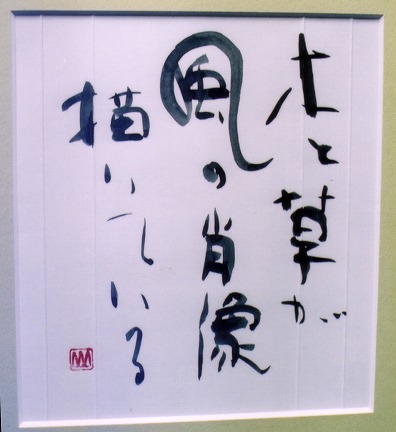 木と草が
風の肖像
描いている